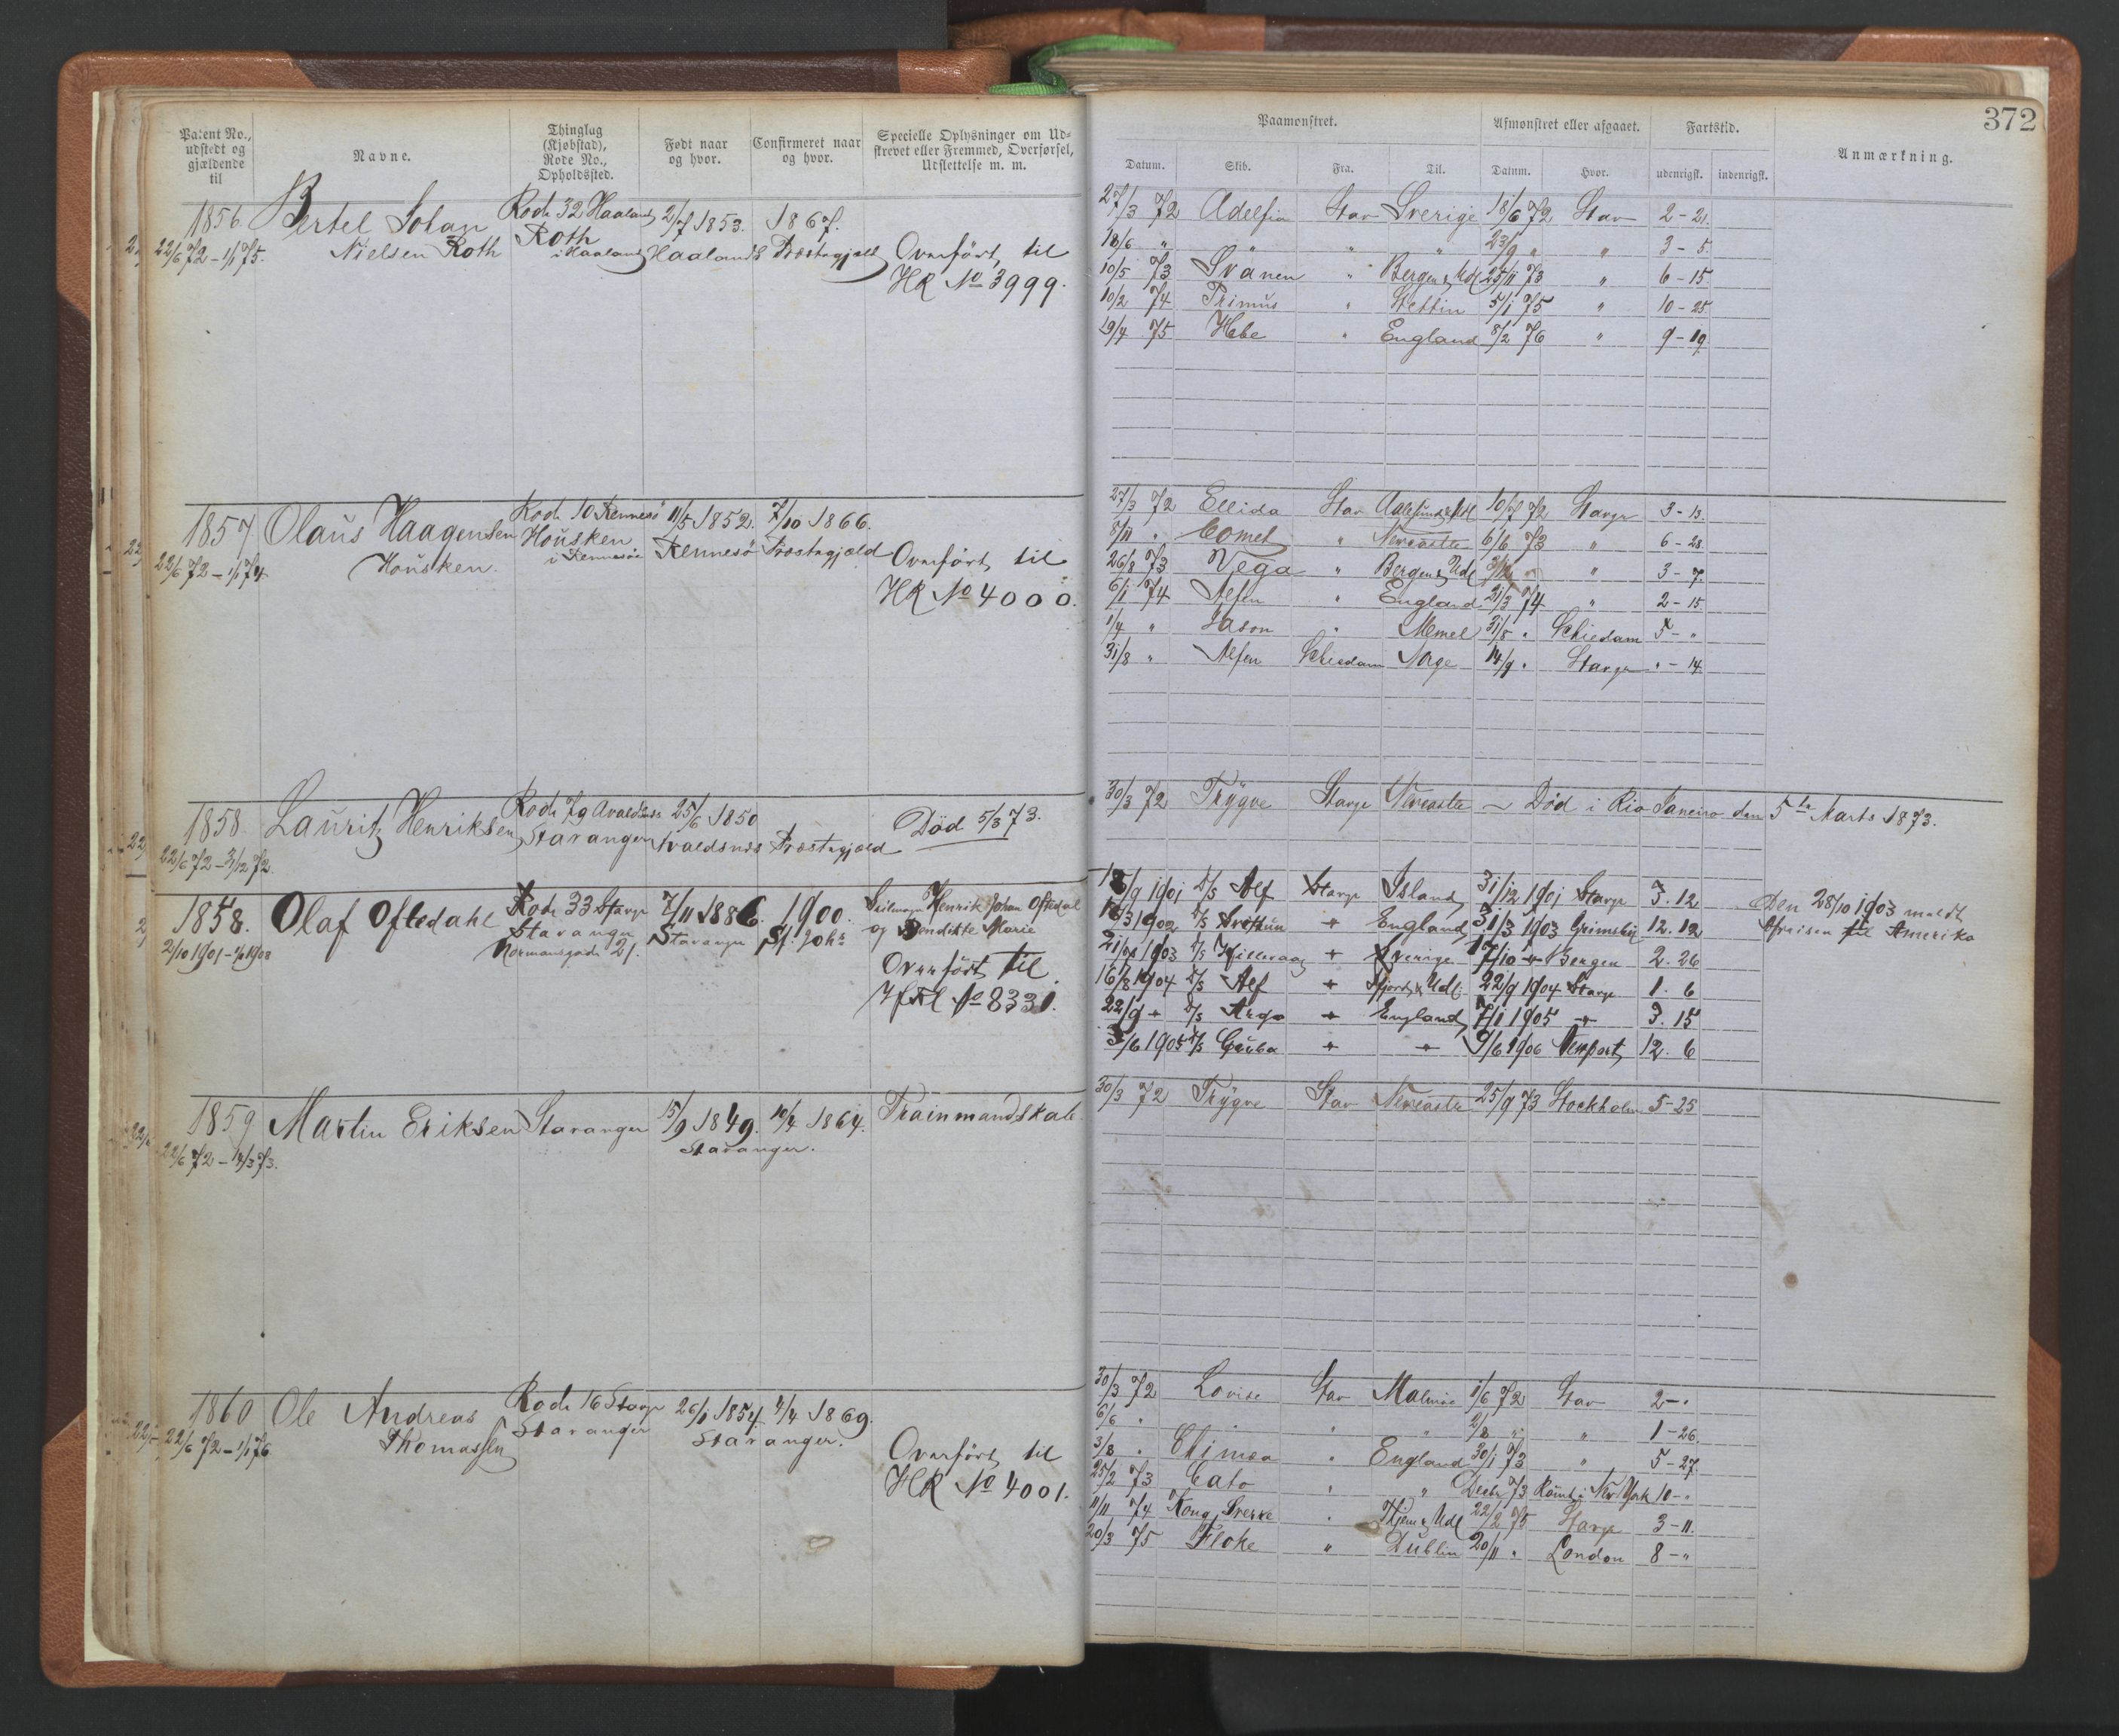 372
Patent No., udstedt og gjældende til
Navne.
Thinglag (Kjøbstad), Rode No., Opholdssted.
Født naar og hvor.
Confirmeret naar og hvor.
Specielle Oplysninger om Udskrevet eller Fremmed, Overførsel, Udslettelse m. m.
Paamønstret.
Afmønstret eller afgaaet.
Fartstid.
Anmærkning.
Datum. Skib. Fra. Til. Datum. Hvor. udenrigsk. indenrigsk.
1856 Bertel Johan Rode 32 Haaland 2/7 1853. 1867.
22/6 72 - 1/1 75. Nielsen Roth Roth i Haaland Haalands Præstegjeld
Overført til
HR No 3999.
27/3 72 Adelfia Stav Sverige 18/6 72 Stav 2 - 21.
18/6 " " " " 23/9 " " 3 - 5.
10/5 73 Svanen " Bergen & Udl 25/11 73 " 6 - 15.
10/2 74 Primus " Stettin 5/1 75 " 10 - 25.
19/4 75 Hebe " England 8/2 76 " 9 - 19.
1857 Olaus Haagensen Rode 10 Rennesö 11/5 1852. 7/10 1866.
22/6 72 - 1/1 74 Housken. Housken i Rennesöe Rennesö Præstegjeld
Overført til
HR No 4000.
27/3 72 Ellida Stav Aalesund & Udl 10/7 72 Stavgr 3 - 13.
8/11 " Comet " Newcastle 6/6 73 " 6 - 28.
26/8 73 Vega " Bergen & Udl " " 3 - 7.
6/1 74 Alfen " England 21/3 74 " 2 - 15
1/4 " Jason " Memel 31/8 " Schiedam 5 - "
31/8 " Alfen Schiedam Norge 14/9 " Stavgr " - 14.
1858 Lauritz Henriksen Rode 79 Avaldsnes 25/6 1850
22/6 72 - 31/12 72. Stavanger Avaldsnes Præstegjæld
Død 5/3 73.
30/3 72 Trygve Stavgr Newcastle - Død i Rio Janeiro den 5te Marts 1873.
1858. Olaf Oftedahl Rode 33 Stavgr 7/11 1886. 1900.
2/10 1901 - 1908 Stavanger Stavanger St. Johs
Normansgade 21.
Henrik Johan Oftedal
og Bendikte Marie
Overført til
No 8331.
1901 D/S Alf Stavgr Island 31/12 1901 Stavgr 3. 12
1902 D/S " England 31/3 1903 Grimsby 12. 12
1903 D/S " Sverige 17/10 " Bergen 2. 26
16/8 1904 D/S Alf " Fjord & Udl. 22/9 1904 Stavgr 1. 6
22/9 " D/S Argo " England 7/1 1905 " 3. 15
3/6 1905 D/S " " 9/6 1906 Newport 12. 6
Den 28/10 1903 meldt
Afreisen til Amerika
1859 Martin Eriksen Stavanger 15/9 1849. 10/4 1864. Trainmandskab
22/6 72 - 14/3 73. Stavanger.
30/3 72 Trygve Stav Newcastle 25/9 73 Stockholm 5 - 25
1860 Ole Andreas Rode 16 Stavgr 26/1 1854. 4/4 1869.
22/6 72 - 1/1 76 Thomassen Stavanger Stavanger.
Overført til
HR No 4001.
30/3 72 Lovise Stav Malmö 1/6 72 Stav 2 - "
6/6 " " " " 2/8 " " 1 - 26.
3/8 " " England 30/1 73 " 5 - 27.
25/2 73 Cato " " Decbr 73 Rømt i New York 10 - "
11/11 74 Kong Sverre " & Udl 22/2 75 Stavgr 3 - 11.
20/3 75 Floke " Dublin 20/11 " London 8 - "